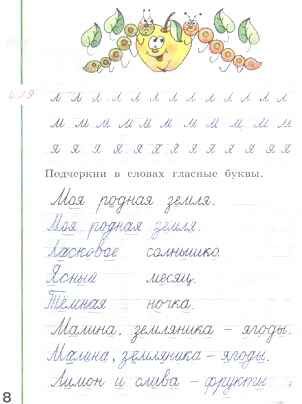 л л л л л л л л л л л л
м м м м м м м м м м м
я я я я я я я я я я я я
Подчеркни в словах гласные буквы.
Моя родная земля.
Моя родная земля.
Ласковое солнышко.
Ясный месяц.
Тёмная ночка.
Малина, земляника – ягоды.
Малина, земляника – ягоды.
Лимон и слива – фрукты
8